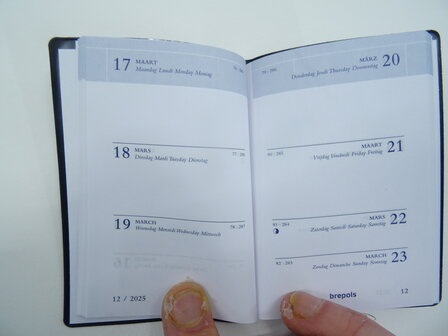 17 MAART
Maandag Lundi Monday Montag
18 MARS
Dinsdag Mardi Tuesday Dienstag
77 - 288
19 MARCH
Woensdag Mercredi Wednesday Mittwoch
78 - 287
12 / 2025
79 - 286
MÄRZ 20
Donderdag Jeudi Thursday Donnerstag
80 - 285
MAART 21
Vrijdag Vendredi Friday Freitag
81 - 284
MARS 22
Zaterdag Samedi Saturday Samstag
82 - 283
MARCH 23
Zondag Dimanche Sunday Sonntag
brepols
12